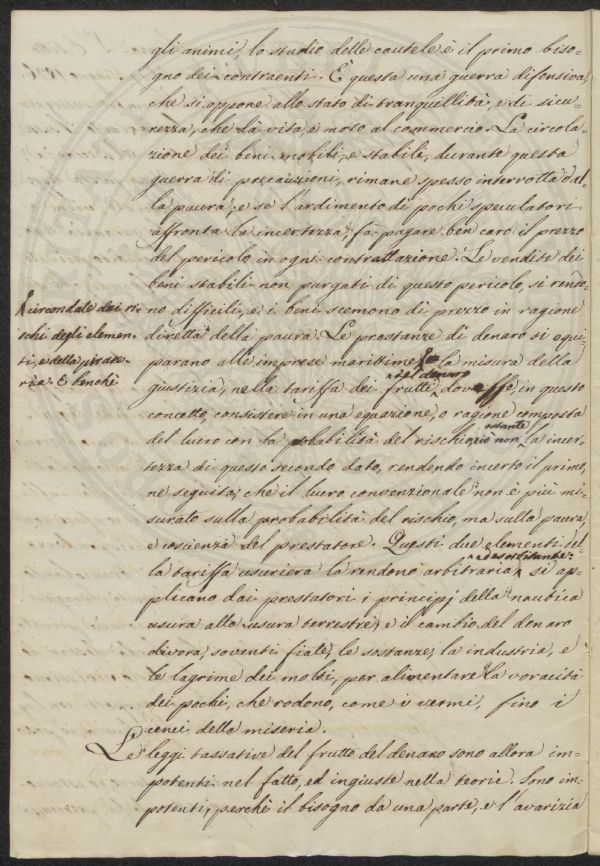 gli animi, lo studio delle cautele è il primo biso-
gno dei contraenti. È questa una guerra difensiva,
che si oppone allo stato di tranquillità, e di sicu-
rezza, che dà vita, e moto al commercio. La circola-
zione dei beni mobili, e stabili, durante questa
guerra di precauzioni, rimane spesso interrotta dal-
la paura, e se l'ardimento di pochi speculatori
affronta le incertezze, fa pagare ben caro il prezzo
del pericolo in ogni contrattazione. Le vendite dei
beni stabili non purgati di questo pericolo, si rendo-
no difficili, e i beni scemono di prezzo in ragione
diretta della paura. Le prestanze di denaro si equi-
parano alle imprese marittime la misura della
circondate dai ri-
schi degli elemen-
ti, e della pirate-
ria. E benchè
giustizia, nella tariffa dei frutti del denaro dovesse, in questo
concetto consistere in una equazione, o ragione composta
del lucro con la probabilità del rischio, ciò non ostante la incer-
tezza di questo secondo dato, rendendo incerto il primo,
ne seguita, che il lucro convenzionale non è più mi-
surato sulla probabilità del rischio, ma sulla paura,
e coscienza del prestatore. Questi due elementi del-
la tariffa usuriera la rendono arbitraria, si ap-
plicano dai prestatori i principj della nautica
usura alla usura terrestre, e il cambio del denaro
divora, soventi fiate, le sostanze, la industria, e
le lagrime dei molti, per alimentare la voracità
dei pochi, che rodono, come i vermi, fino i
cenci della miseria.
Le leggi tassative del frutto del denaro sono allora im-
potenti nel fatto, ed ingiuste nella teoria. Sono im-
potenti, perchè il bisogno da una parte, e l'avarizia